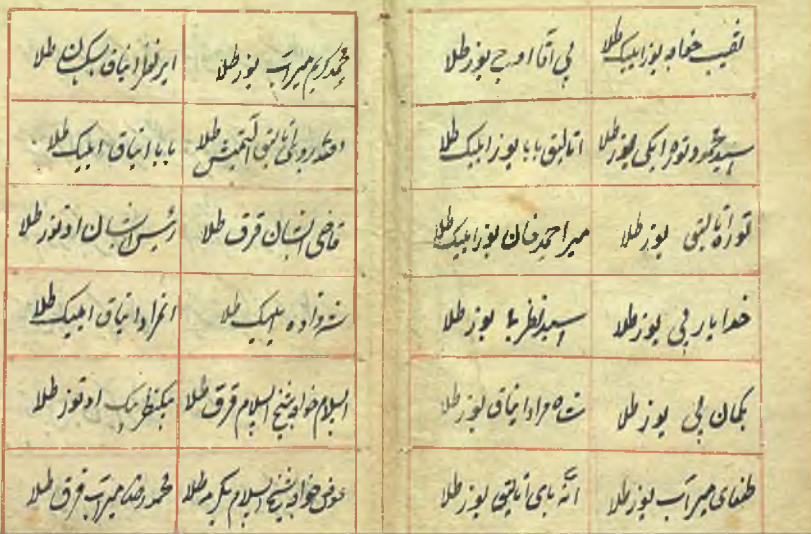 نقیب خواجه یوز ایلیک طلا
بی آتا اوچ یوز طلا
سید محمود توره ایکی یوز طلا
اتالیق بابا یوز ایلیک طلا
توره اتالیق یوز طلا
میر احمد خان یوز ایلیک طلا
خدایار بی یوز طلا
سید نظر یوز طلا
بکمان بی یوز طلا
شاه مراد ایناق یوز طلا
طغای میرآب یوز طلا
آنه بای اتالیق یوز طلا
محمد کریم میرآب یوز طلا
ایر نظر ایناق سکسان طلا
اتالیق آلتمیش طلا
بابا ایناق ایلیک طلا
قاضی ایشان قرق طلا
رئیس ایشان اوتوز طلا
شهزاده ایلیک طلا
ایناق ایلیک طلا
اسلام خواجه شیخ الاسلام قرق طلا
بیک اوتوز طلا
عوض خواجه شیخ الاسلام یکرمه طلا
محمد رضا میرآب قرق طلا